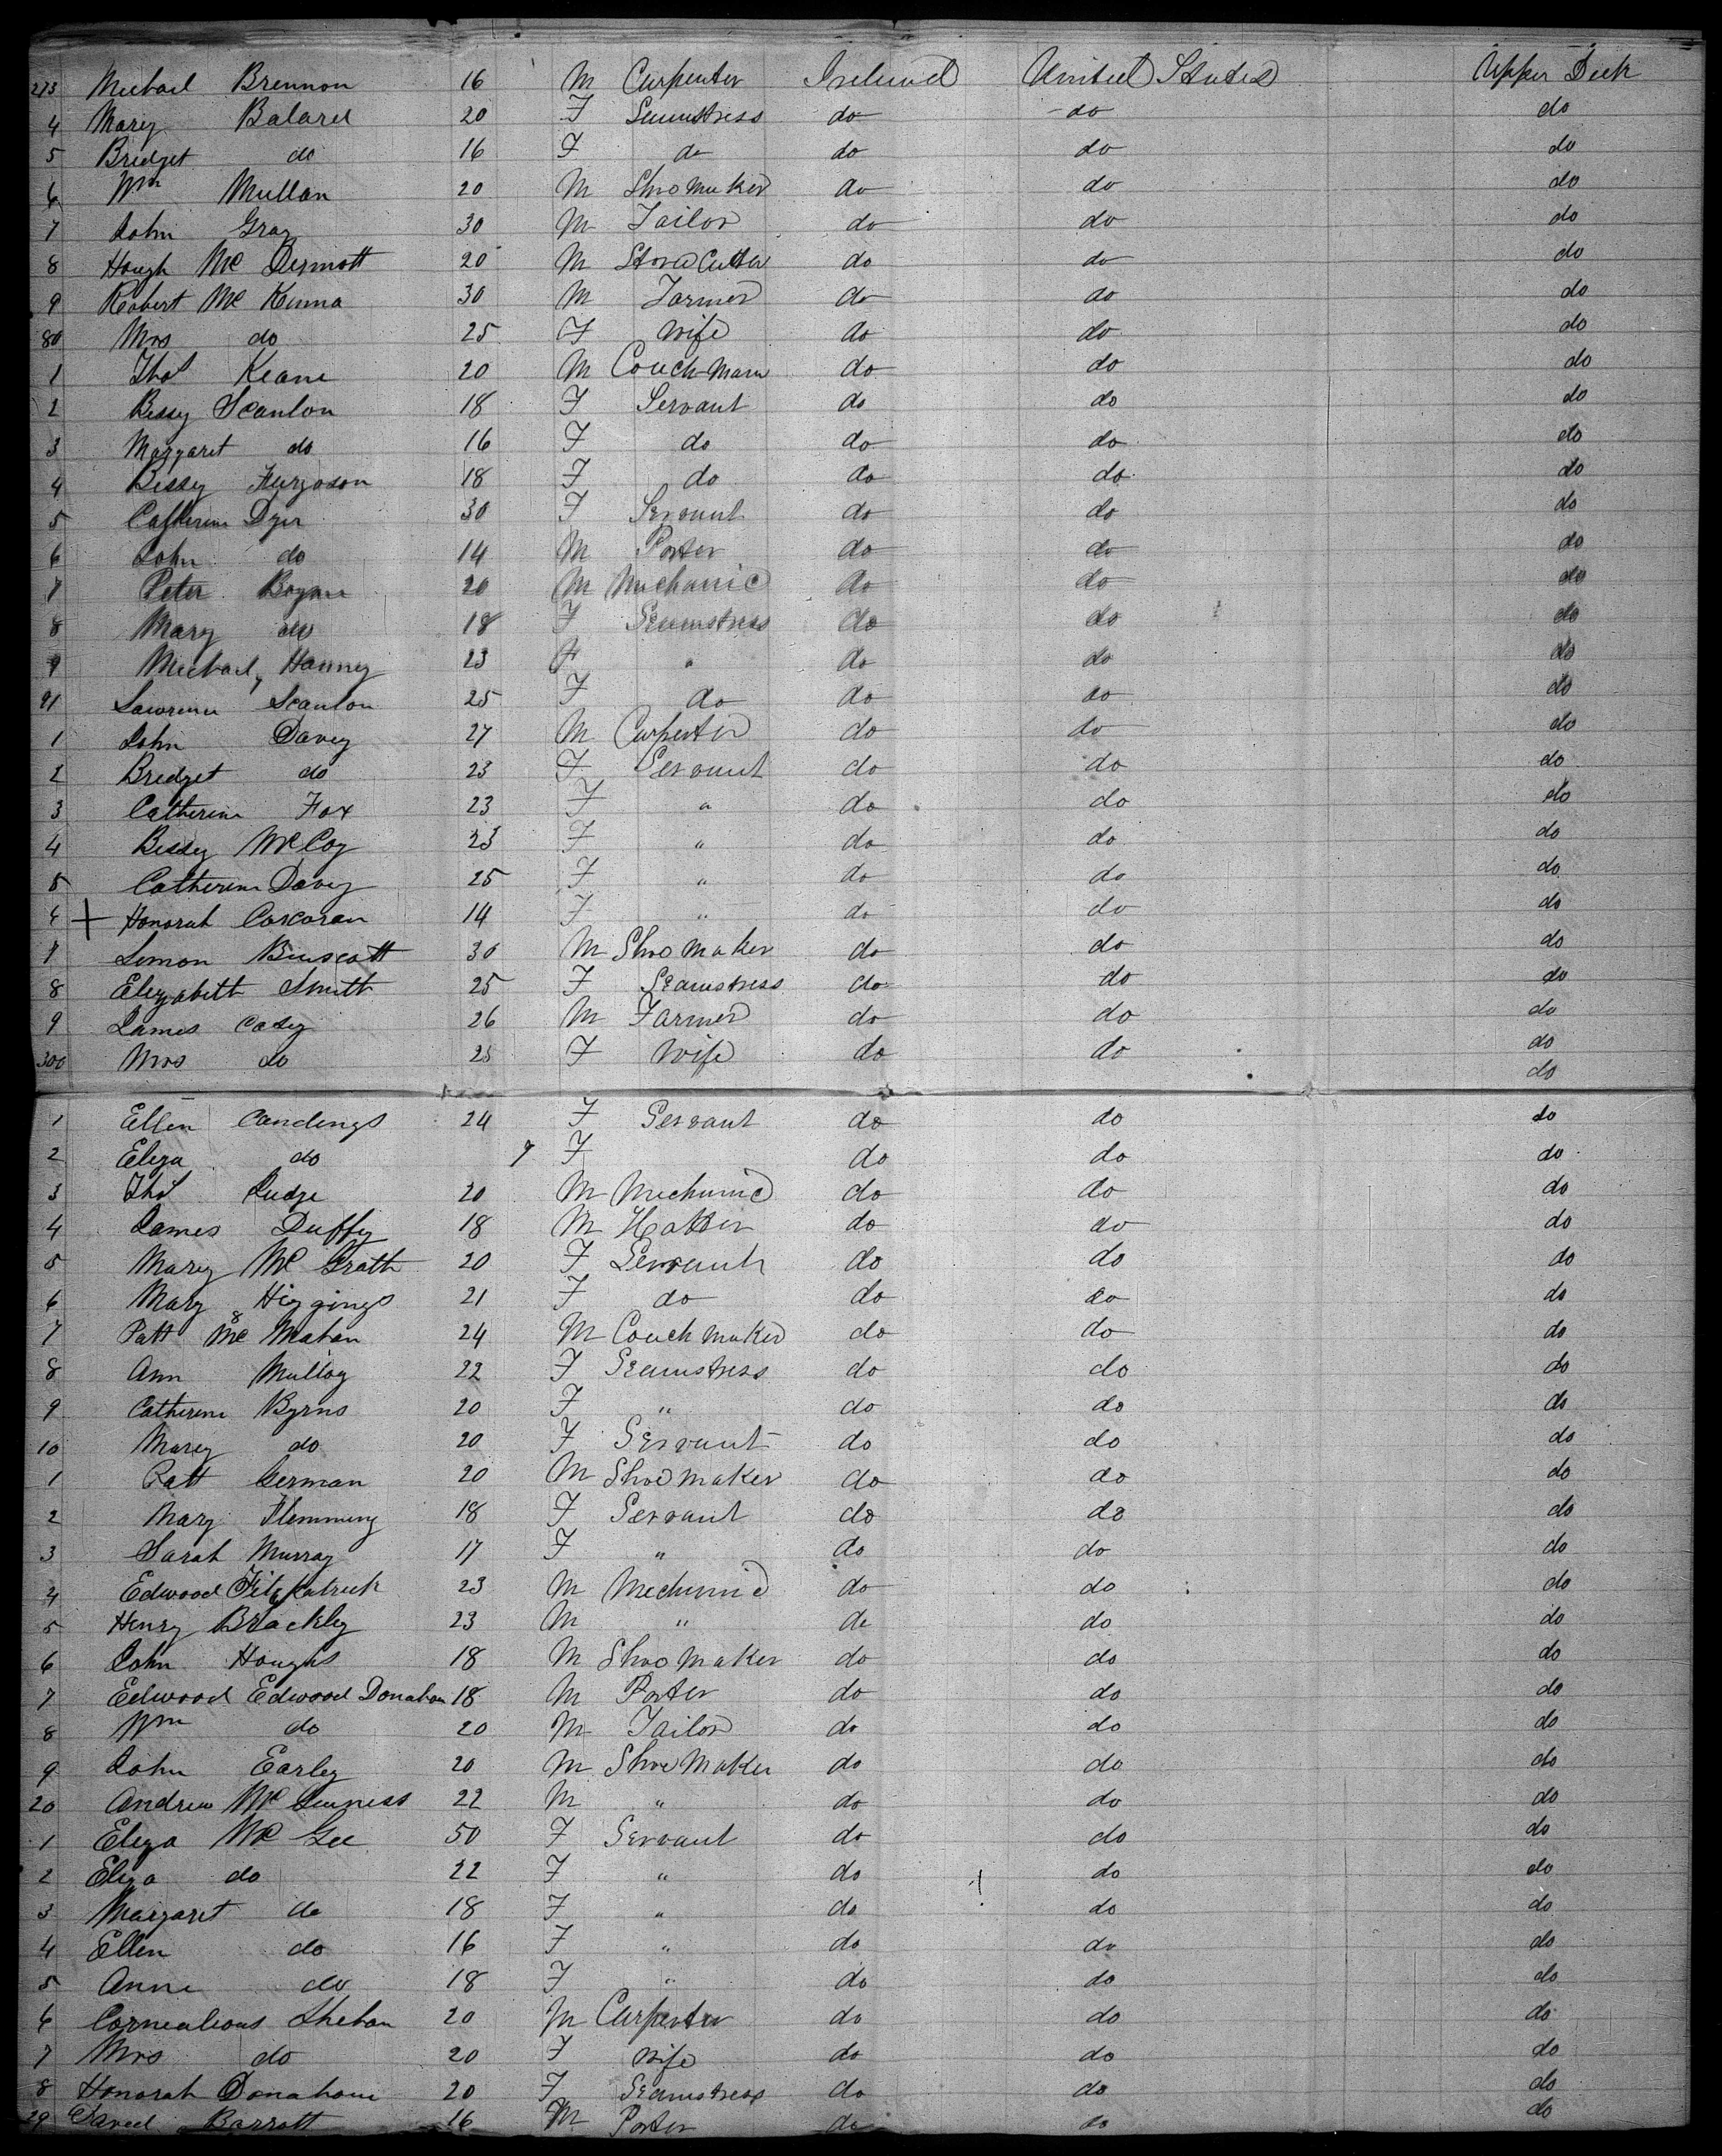 273 Michael Brennon 16 M Carpenter Ireland United States Upper Deck
4 Mary Balard 20 F Seamstress do do do
5 Bridget do 16 F do do do do
6 Wm Mullan 20 M Shoemaker do do do
7 John Gray 30 M Tailor do do do
8 Hough Mc Dermott 20 M Stone Cutter do do do
9 Robert Mc Kenna 30 M Farmer do do do
80 Mrs do 25 F Wife do do do
1 Thos Keane 20 M Coach-Man do do do
2 Bessy Scanlon 18 F Servant do do do
3 Margaret do 16 F do do do do
4 Bessy Furgoson 18 F do do do do
5 Catherine Dyer 30 F Servant do do do
6 John do 14 M Porter do do do
7 Peter Boyne 20 M Mechanic do do do
8 Mary do 18 F Seamstress do do do
9 Michael Hanney 23 F " do do do
91 Lawrence Scanlon 25 F do do do do
1 John Davey 27 M Carpenter do do do
2 Bridget do 23 F Servant do do do
3 Catherine Fox 23 F " do do do
4 Bessy McCoy 23 F " do do do
5 Catherine Davey 25 F " do do do
6 + Honorah Corcoran 14 F " do do do
7 Simon 30 M Shoe Maker do do do
8 Elizabeth Smith 25 F Seamstress do do do
9 James Casey 26 M Farmer do do do
300 Mrs do 25 F Wife do do do
do
1 Ellen Candengs 24 F Servant do do do
2 Eliza do 9 F do do do
3 Thos Judge 20 M Mechanic do do do
4 James Duffy 18 M Hatter do do do
5 Mary Mc Grath 20 F Servant do do do
6 Mary Higgings 21 F do do do do
7 Patt Mc Mahan 24 M Coach Maker do do do
8 Ann Mulloy 22 F Seamstress do do do
9 Catherine Byrns 20 F " do do do
10 Mary do 20 F Servant do do do
1 Patt German 20 M Shoemaker do do do
2 Mary Flemming 18 F Servant do do do
3 Sarah Murray 17 F " do do do
4 Edwood Fitzpatrick 23 M Mechanic do do do
5 Henry Brackley 23 M " do do do
6 John Houghs 18 M Shoe Maker do do do
7 Edwood Edwood Donahon 18 M Porter do do do
8 Wm do 20 M Tailor do do do
9 John Earley 20 M Shoe Maker do do do
20 Andrew Mc Guiness 22 M " do do do
1 Eliza Mc Gee 50 F Servant do do do
2 Eliza do 22 F " do do do
3 Margaret do 18 F " do do do
4 Ellen do 16 F " do do do
5 Anne do 18 F " do do do
6 Cornealious Shehan 20 M Carpenter do do do
7 Mrs do 20 F Wife do do do
8 Honorah Donahoue 20 F Seamstress do do do
29 Barrott 16 M Porter do do do